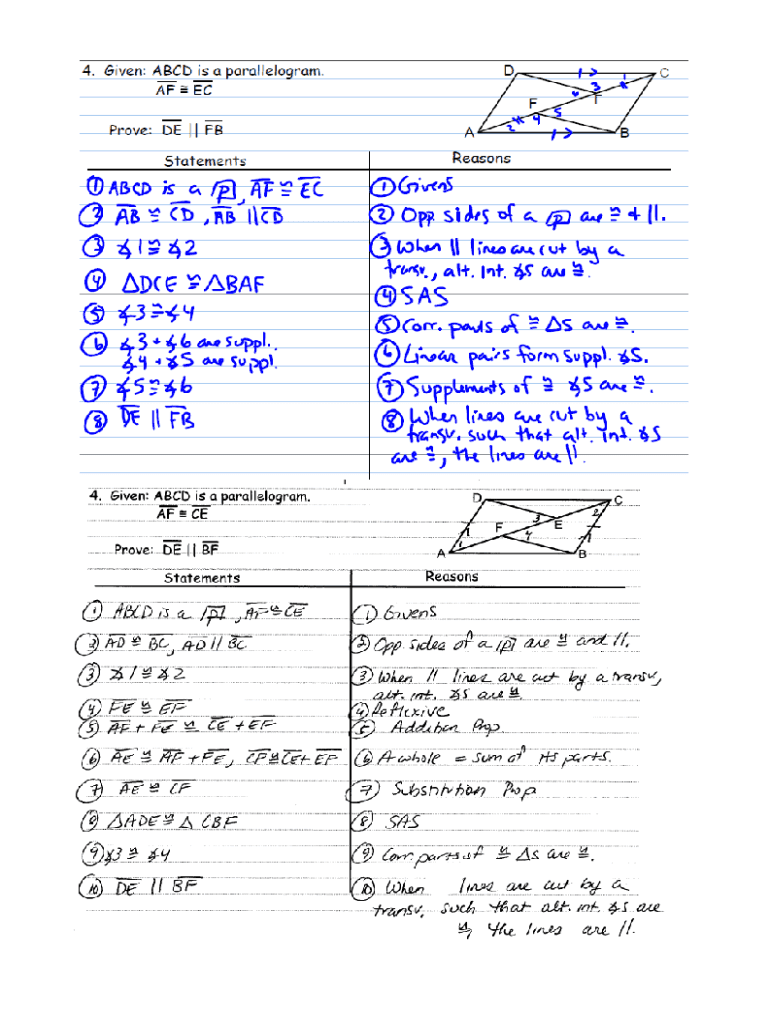 4. Given: ABCD is a parallelogram.
AF ≅ EC
Prove: DE || FB
D C
F
A B
1 3 x 6 5 4 2 x
Statements Reasons
① ABCD is a ▱p, AF ≅ EC
① Givens
② AB ≅ CD, AB || CD
② Opp sides of a ▱p are ≅ + ||.
③ ∡1 ≅ ∡2
③ When || lines are cut by a
transv., alt. Int. ∡s are ≅.
④ △DCE ≅ △BAF
④ SAS
⑤ ∡3 ≅ ∡4
⑤ Corr. parts of ≅ △s are ≅.
⑥ ∡3 + ∡6 are suppl.
∡4 + ∡5 are suppl.
⑥ Linear pairs form suppl. ∡s.
⑦ ∡5 ≅ ∡6
⑦ Supplements of ≅ ∡s are ≅.
⑧ DE || FB
⑧ When lines are cut by a
transv. such that alt. int. ∡s
are ≅, the lines are ||.
4. Given: ABCD is a parallelogram.
AF ≅ CE
Prove: DE || BF
D C
F E
A B
1 2 3 4
Statements Reasons
① ABCD is a ▱p, AF ≅ CE
① Givens
② AD ≅ BC, AD || BC
② Opp sides of a ▱p are ≅ and ||.
③ ∡1 ≅ ∡2
③ When || lines are cut by a transv,
alt. int. ∡s are ≅.
④ FE ≅ EF
④ Reflexive
⑤ AF + FE ≅ CE + EF
⑤ Addition Prop
⑥ AE ≅ AF + FE, CF ≅ CE + EF
⑥ A whole = sum of its parts.
⑦ AE ≅ CF
⑦ Substitution Prop
⑧ △ADE ≅ △CBF
⑧ SAS
⑨ ∡3 ≅ ∡4
⑨ Corr. parts of ≅ △s are ≅.
⑩ DE || BF
⑩ When lines are cut by a
transv. such that alt. int. ∡s are
≅, the lines are ||.